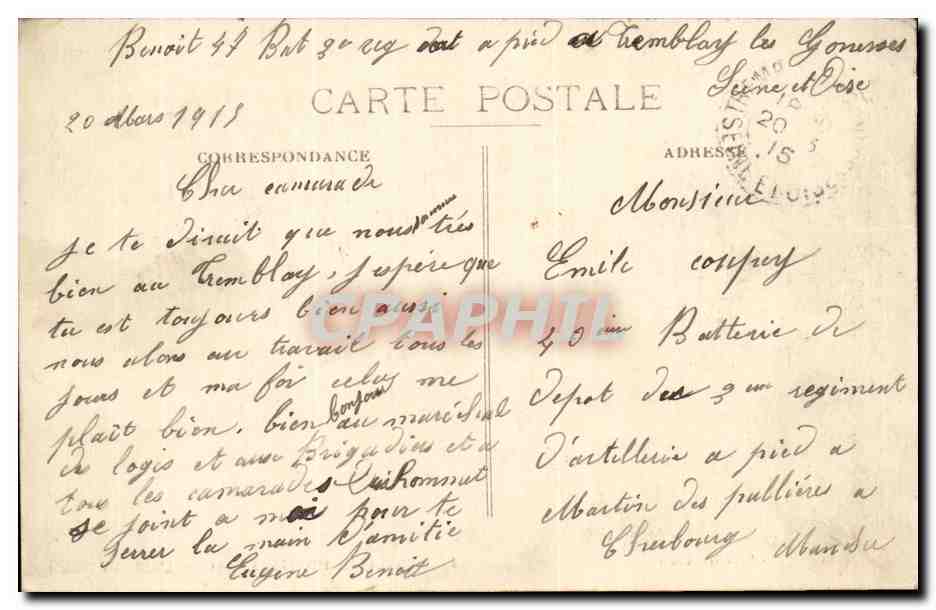 Benoit 47 Bat 3e reg art a pied a Tremblay les Gonesses
Seine et Oise
20 Mars 1915
CARTE POSTALE
CORRESPONDANCE
ADRESSE
20
15
Cher camarade
je te dirait que nous sommes très
bien au Tremblay, j'espère que
tu est toujours bien aussi
nous alons au travail tous les
jours et ma foi cela me
plaît bien. bien bonjour au maréchal
des logis et aux Brigadier et a
tous les camarades
se joint a moi pour te
serrer la main d'amitie
Eugene Benoit
Monsieur
Emile
40 ième Batterie de
depot des 3 eme regiment
d'artellerie a pied a
Martin des pallières a
Cherbourg Manche
CPAPHIL